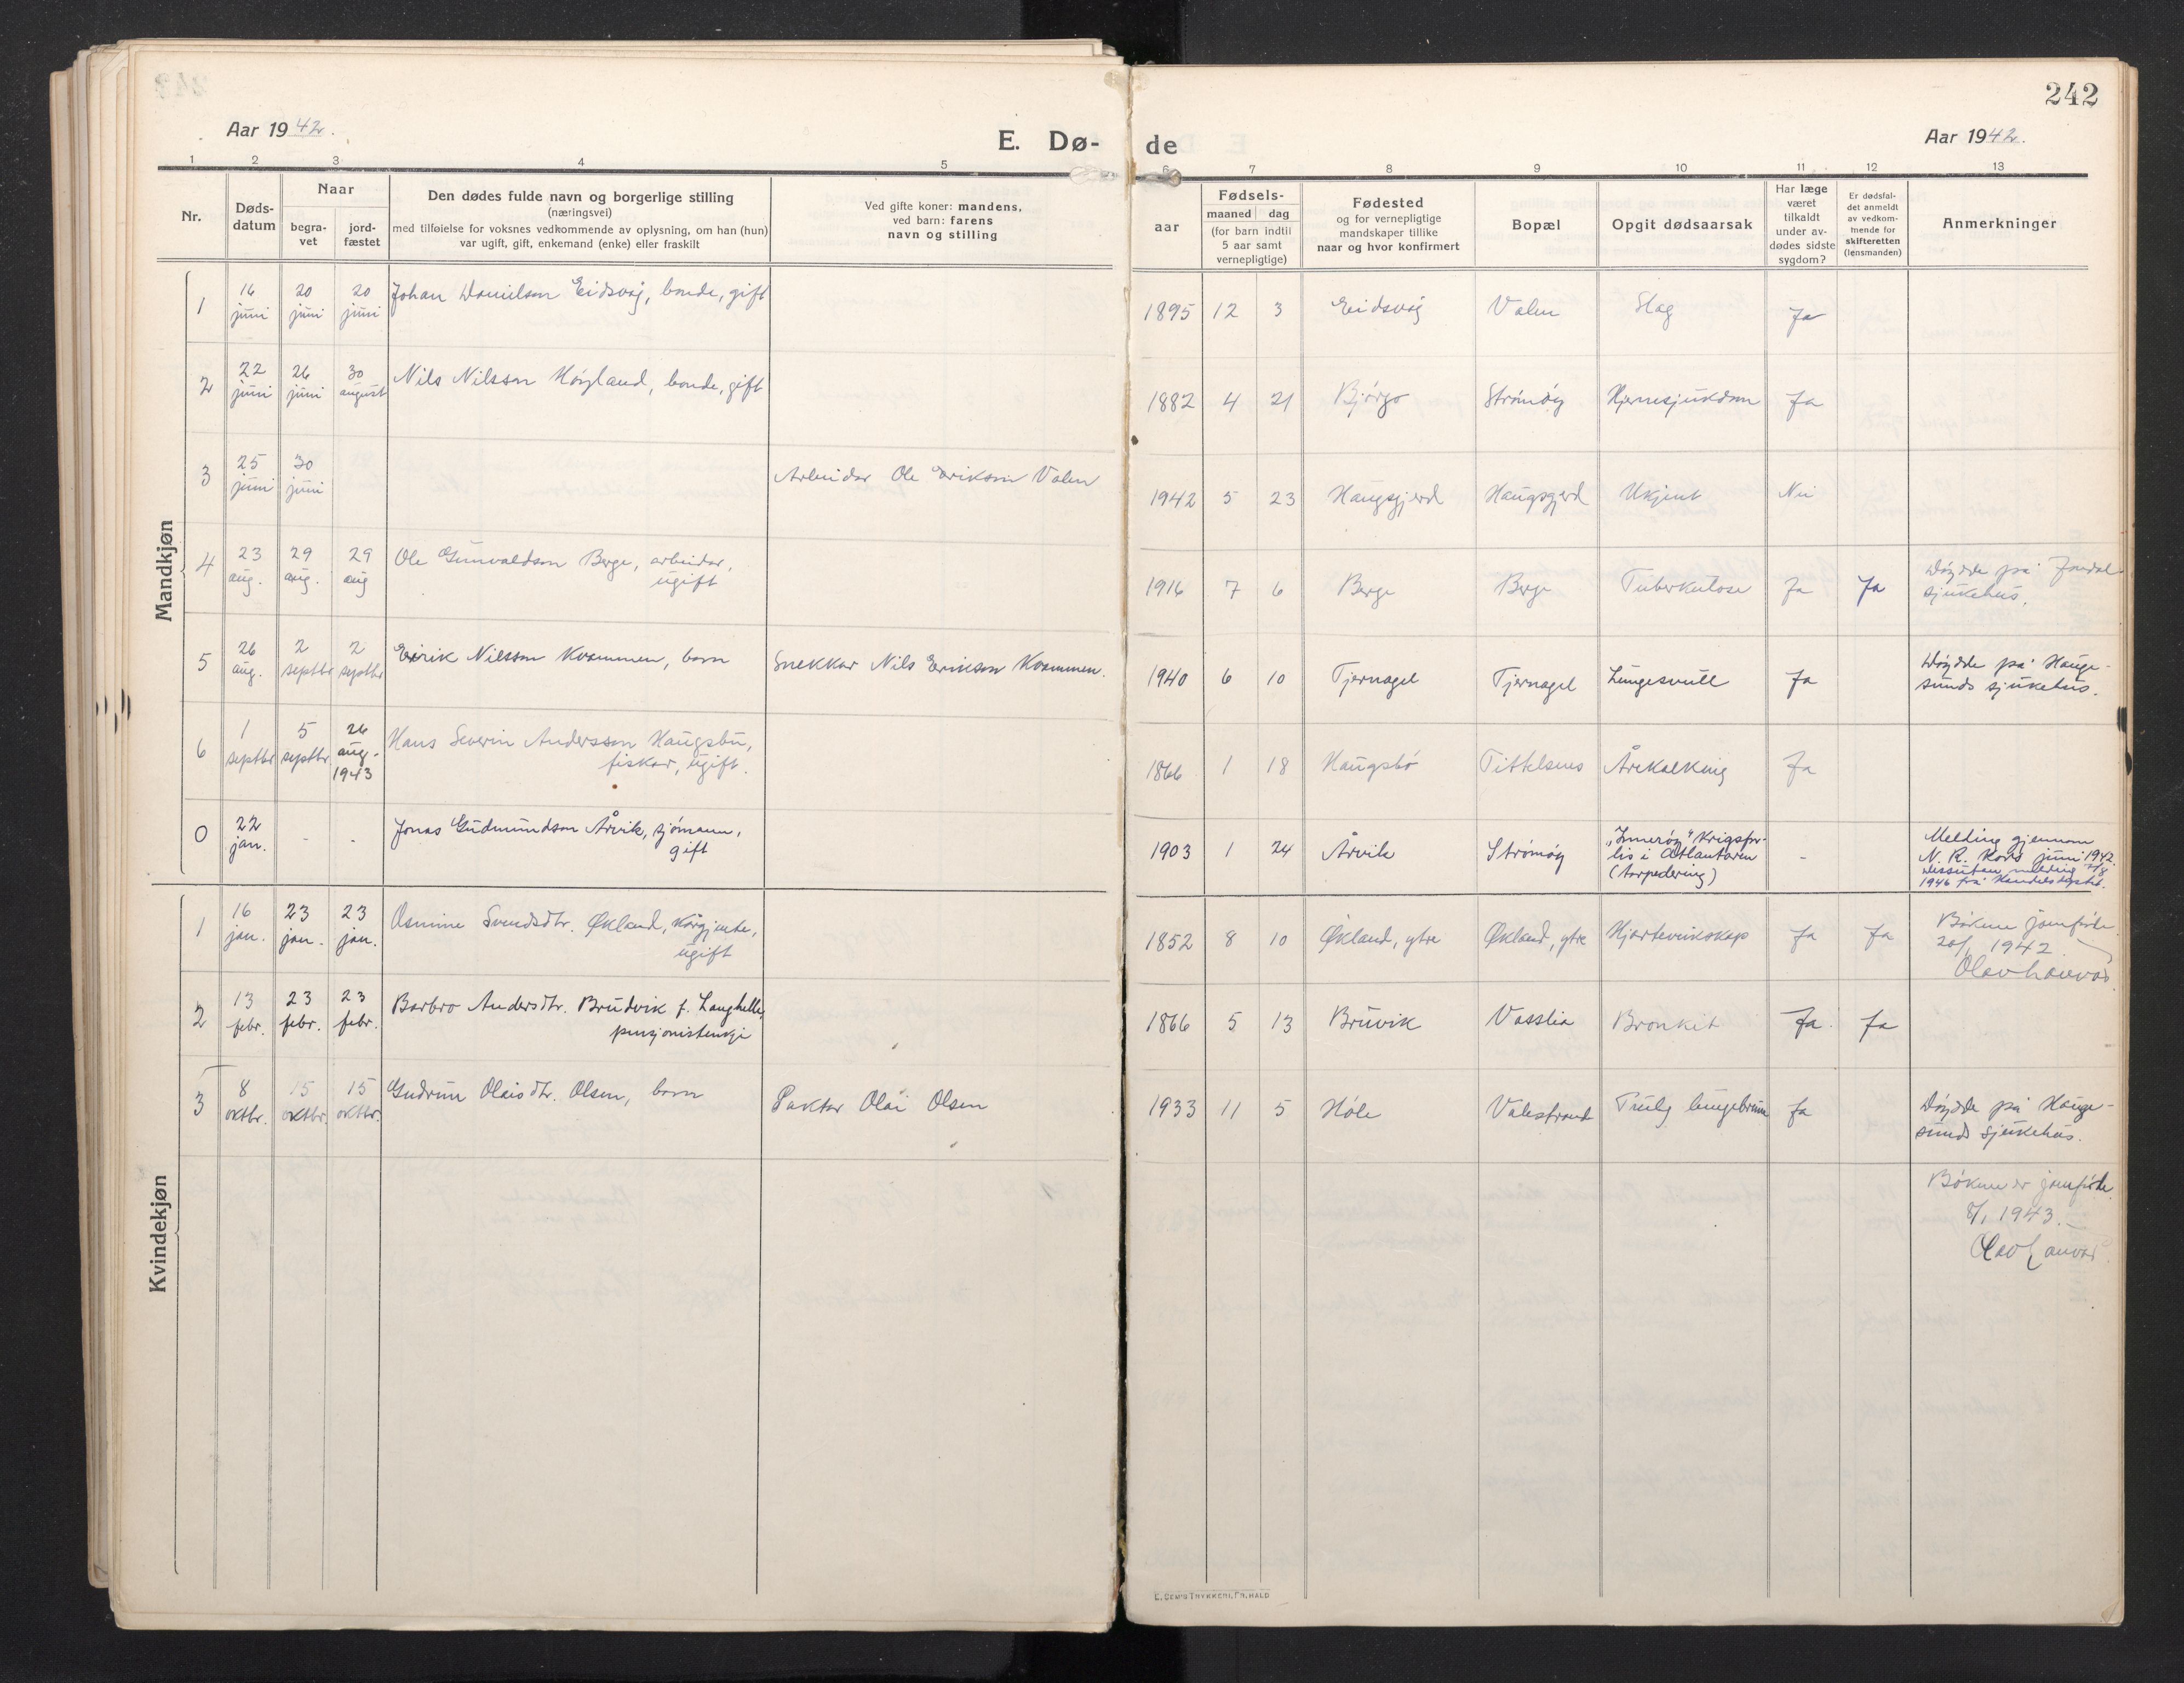 242
Aar 1942.
E. Dø-
de
Aar 1942.
1 2 3 4 5 6 7 8 9 10 11 12 13
Nr.
Døds-
datum
Naar
begra-
vet
jord-
fæstet
Den dødes fulde navn og borgerlige stilling
(næringsvei)
med tilføielse for voksnes vedkommende av oplysning, om han (hun)
var ugift, gift, enkemand (enke) eller fraskilt
Ved gifte koner: mandens,
ved barn: farens
navn og stilling
Fødsels-
aar
maaned dag
(for barn indtil
5 aar samt
vernepligtige)
Fødested
og for vernepligtige
mandskaper tillike
naar og hvor konfirmert
Bopæl
Opgit dødsaarsak
Har læge
været
tilkaldt
under av-
dødes sidste
sygdom?
Er dødsfal-
det anmeldt
av vedkom-
mende for
skifteretten
(lensmanden)
Anmerkninger
Mandkjøn
1 16 juni 20 juni 20 juni Johan Danielson Eidsvåg, bonde, gift 1895 12 3 Eidsvåg Valen Slag Ja
2 22 juni 26 juni 30 august Nils Nilsson Høyland, bonde, gift 1882 4 21 Bjørgo Strømøy Hjernesjukdom Ja
3 25 juni 30 juni Arbeidar Ole Erikson Valen 1942 5 23 Haugsgjerd Haugsgjerd Ukjent Nei
4 23 aug. 29 aug. 29 aug Ole Gunvaldson Berge, arbeidar,
ugift 1916 7 6 Berge Berge Tuberkulose Ja Ja Døydde på
sjukehus.
5 26 aug. 2 septbr 2 septbr Eirik Nilsson Kvammen, barn Snekkar Nils Erikson Kvammen. 1940 6 10 Tjernagel Tjernagel Lungesvull Ja Døydde på Hauge-
sunds sjukehus.
6 1 septbr 5 septbr. 26 aug. 1943 Hans Severin Andersson Haugsbø,
fiskar, ugift. 1866 1 18 Haugsbø Tittelsnes Årekalking Ja
0 22 jan. - - Jonas Gudmundson Årvik, sjømann,
gift 1903 1 24 Årvik Strømøy "Innerøy" Krigsfor-
lis i Atlantaren
(torpedering) - Melding gjennom
N. R. Kors juni 1942.
Dessutan melding
1946 frå Handelsdept.
Kvindekjøn
1 16 jan. 23 jan. 23 jan. Asmine Svendsdtr. Økland, kårgjente,
ugift 1852 8 10 Økland, ytre Økland, ytre Hjerteveikskap Ja Ja Bøkene jamførte
20/1 1942
Olav Hanvar
2 13 febr. 23 febr. 23 febr. Barbro Andersdtr. Brudvik f. Langhelle,
pensjonistenkje 1866 5 13 Bruvik Vasslia Bronkit Ja Ja
3 8 oktbr. 15 oktbr. 15 oktbr. Gudrun Olaisdtr. Olsen, barn Paktar Olai Olsen 1933 11 5 Høle Valestrand Truleg lungebrann Ja Døydde på Hauge-
sunds sjukehus.
Bøkene er jamførte
8/1 1943.